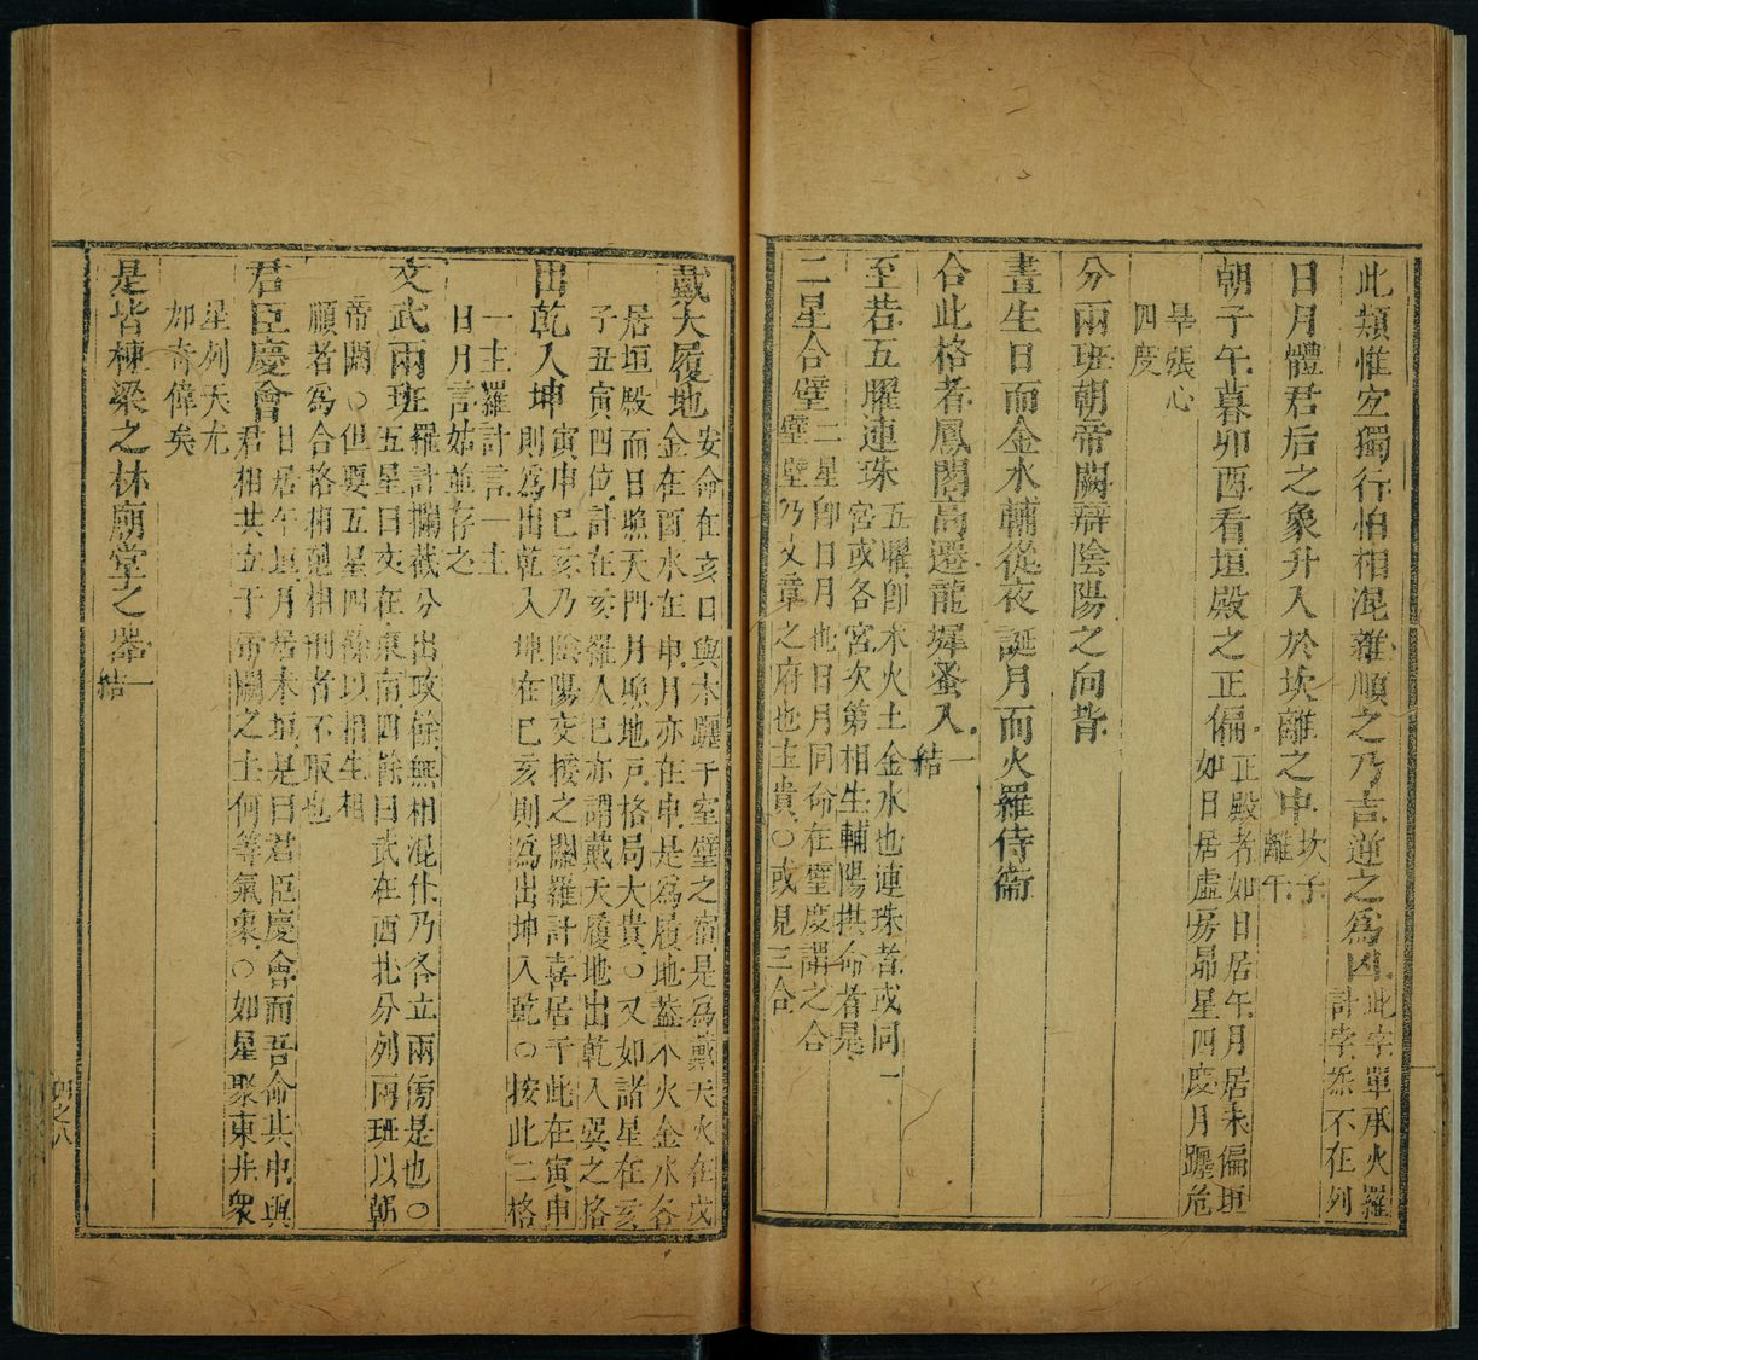 此類惟宜獨行怕相混雜順之乃吉逆之爲凶此孛單承火羅
計孛炁不在列
日月體君后之象升入於坎離之中坎子
離午
朝子午暮卯酉看垣殿之正偏正殿者如日居午月居未偏垣
如日居虛房昴星四度月躔危
畢張心
四度
分兩班朝帝闕辯陰陽之向背
晝生日而金水輔從夜誕月而火羅侍衞
合此格者鳳閣高遷龍墀蚤入一
結
至若五曜連珠五曜卽木火土金水也連珠者或同一
宮或各宮次第相生輔陽拱命者是
二星合璧二星卽日月也日月同命在璧度謂之合
璧壁乃文章之府也主貴○或見三合
戴天履地安命在亥日與木躔于室壁之宿是爲戴天火在戌
金在酉水在申月亦在申是爲履地蓋木火金水各
居垣殿而日照天門月照地戶格局大貴○又如諸星在亥
子丑寅四位計在亥羅入巳亦謂戴天履地出乾入巽之格
出乾入坤寅申巳亥乃陰陽交接之關羅計喜居于此在寅申
則爲出乾入坤在巳亥則爲出坤入乾○按此二格
一主羅計言一主
日月言姑並存之
文武兩班羅計攔截分出政餘無相混什乃各立兩傍是也○
五星曰文在東南四餘曰武在西北分列兩班以朝
帝闕○但要五星四餘以相生相
順者爲合格相剋相刑者不取也
君臣慶會日居午垣月居未垣是曰君臣慶會而吾命其中與
君相共立于帝闕之上何等氣象○如星聚東井衆
星列天尤
如奇偉矣
是皆棟梁之材廟堂之器一
結